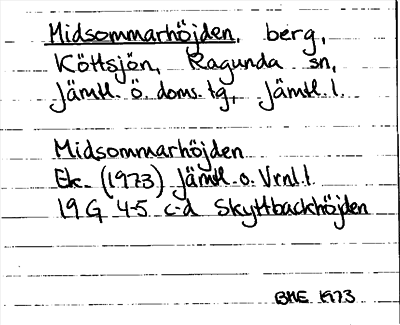 Midsommarhöjden, berg,
Köttsjön, Ragunda sn,
Jämtl. ö. doms. tg, Jämtl. l.
Midsommarhöjden
Ek. (1973) Jämtl. o. Vrnl. l.
19 G 4-5 c-d Skyttbackhöjden
BHE 1973